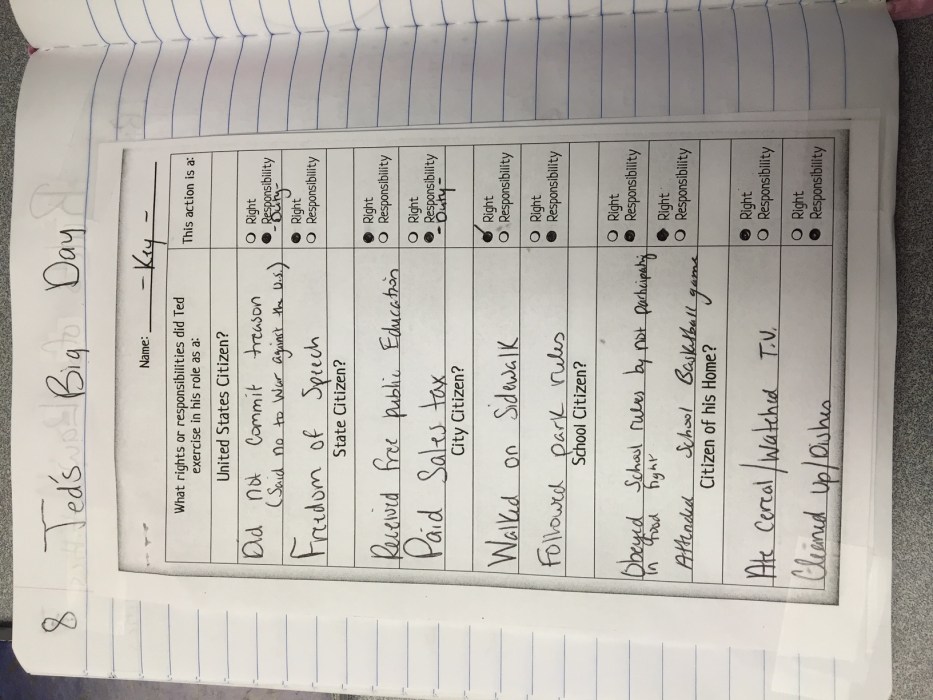 8 Ted's Big Day
Name: - Key -
What rights or responsibilities did Ted
exercise in his role as a:
This action is a:
United States Citizen?
Did not commit treason
(Said no to War against the U.S.)
Right
Responsibility
- Duty -
Freedom of Speech
Right
Responsibility
State Citizen?
Received free public Education
Right
Responsibility
Paid Sales tax
Right
Responsibility
- Duty -
City Citizen?
Walked on Sidewalk
Right
Responsibility
Followed park rules
Right
Responsibility
School Citizen?
Obeyed School rules by not participating
in food fight
Right
Responsibility
Attended School Basketball game
Right
Responsibility
Citizen of his Home?
Ate Cereal/Watched T.V.
Right
Responsibility
Cleaned up/Dishes
Right
Responsibility